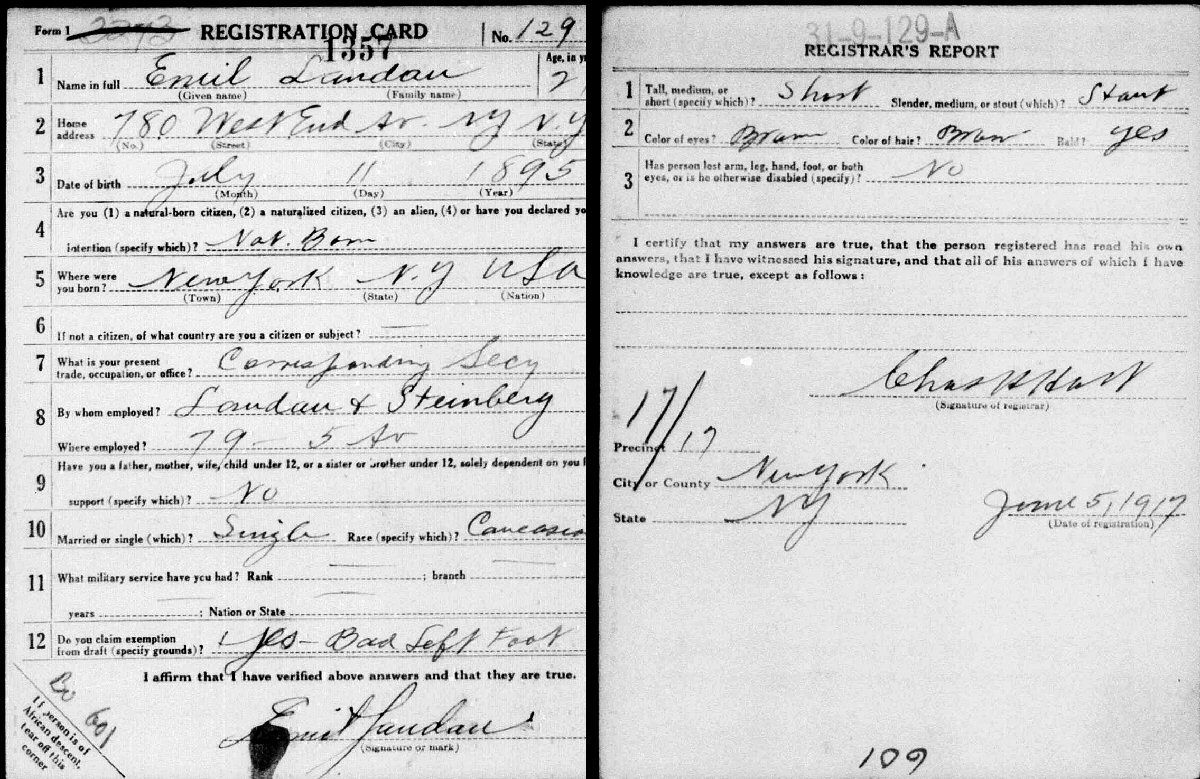 Form 1 2293 REGISTRATION CARD No. 129
1357
Age, in yr
1 Name in full Emil Landau 2
(Given name) (Family name)
2 Home address 780 West End Av. NY NY
(No.) (Street) (City) (State)
3 Date of birth July 11 1895
(Month) (Day) (Year)
4 Are you (1) a natural-born citizen, (2) a naturalized citizen, (3) an alien, (4) or have you declared yo
intention (specify which)? Nat. Born
5 Where were you born? New York N.Y USA
(Town) (State) (Nation)
6 If not a citizen, of what country are you a citizen or subject?
7 What is your present trade, occupation, or office? Corresponding Secy
8 By whom employed? Landau + Steinberg
Where employed? 79 - 5 Av
9 Have you a father, mother, wife, child under 12, or a sister or brother under 12, solely dependent on you f
support (specify which)? No
10 Married or single (which)? Single Race (specify which)? Caucasia
11 What military service have you had? Rank ; branch
years ; Nation or State
12 Do you claim exemption from draft (specify grounds)? Yes - Bad Left Foot
I affirm that I have verified above answers and that they are true.
Emil Landau
(Signature or mark)
601
If person is of
African descent,
tear off this
corner
31-9-129-A
REGISTRAR'S REPORT
1 Tall, medium, or short (specify which)? Short Slender, medium, or stout (which)? Stout
2 Color of eyes? Brown Color of hair? Brown Bald? Yes
3 Has person lost arm, leg, hand, foot, or both eyes, or is he otherwise disabled (specify)? No
I certify that my answers are true, that the person registered has read his own
answers, that I have witnessed his signature, and that all of his answers of which I have
knowledge are true, except as follows:
Chas H Hart
(Signature of registrar)
17/
Precinct 17
City or County New York
State NY June 5, 1917
(Date of registration)
109